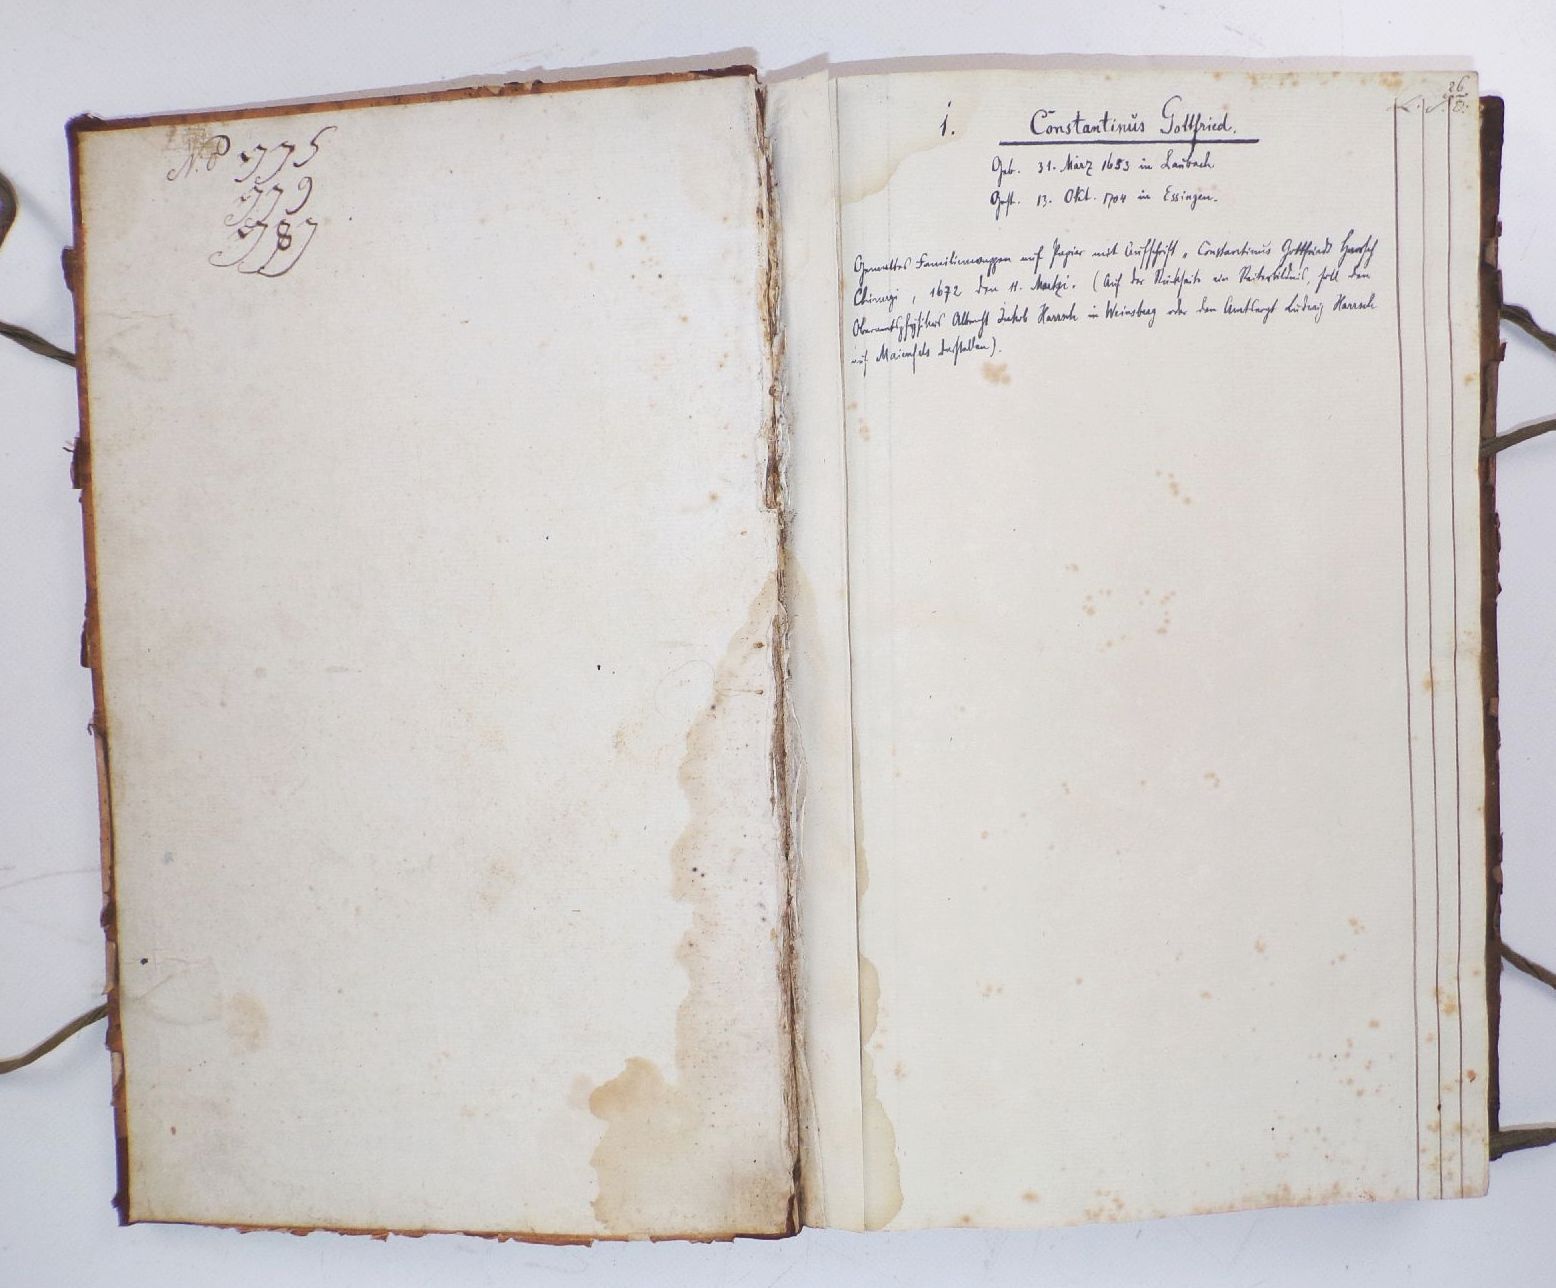 No 1775
1779
1787
26
1. Constantinus Gottfried.
Geb. 31. März 1653 in Laubach
Gest. 13. Okt. 1704 in Essingen.
Gemaltes Familienwappen auf Papier mit Aufschrift „ Constantinus Gottfriedt Harsch
Chirurgi, 1672 den 11. Martzi. (Auf der Rückseite ein Reiterbildnis, soll den
Oberamtsphysikus Albrecht Jakob Harrsch in Weinsberg oder den Amtsarzt Ludwig Harrsch
auf Maienfels darstellen).